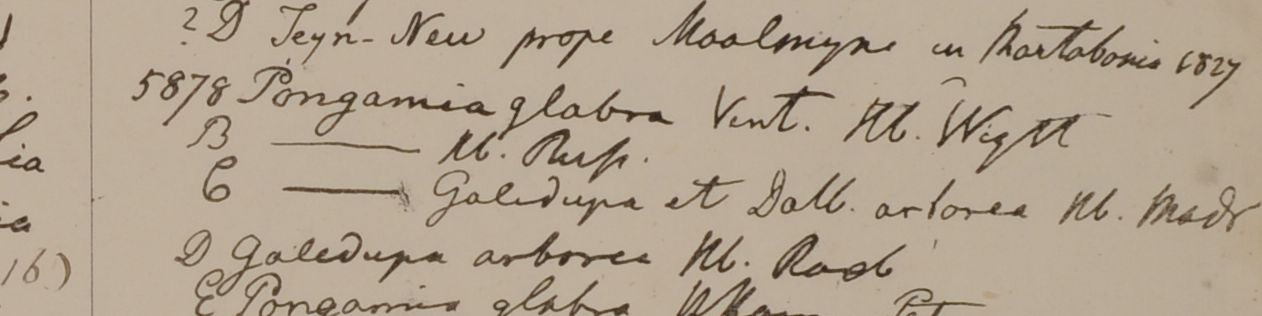 ? D Teyn-New prope Moalmyne in Martabania 1827
5878 Pongamia glabra Vent. Hb. Wight
B — Hb. Russ.
C — Galedupa et Dalb. arborea Hb. Madr
D Galedupa arborea Hb. Roxb
E Pongamia glabra